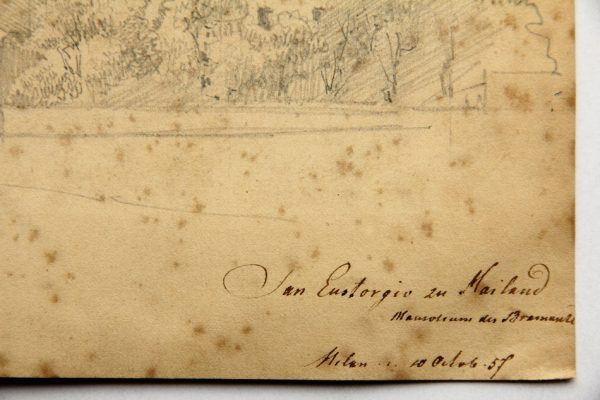 San Eustorgio zu Mailand
Mausoleum des Bramante
10 Octob. 57